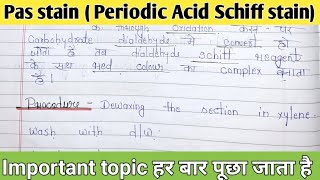 Pas stain ( Periodic Acid Schiff stain)
Oxidation पर
Carbohydrate dialdehyde में convert हो
जाता है तब dialdehyde schiff reagent
के साथ Red colour का complex बनाता
है।
Procedure - Dewaxing the section in xylene
wash with d/w.
Important topic हर बार पूछा जाता है